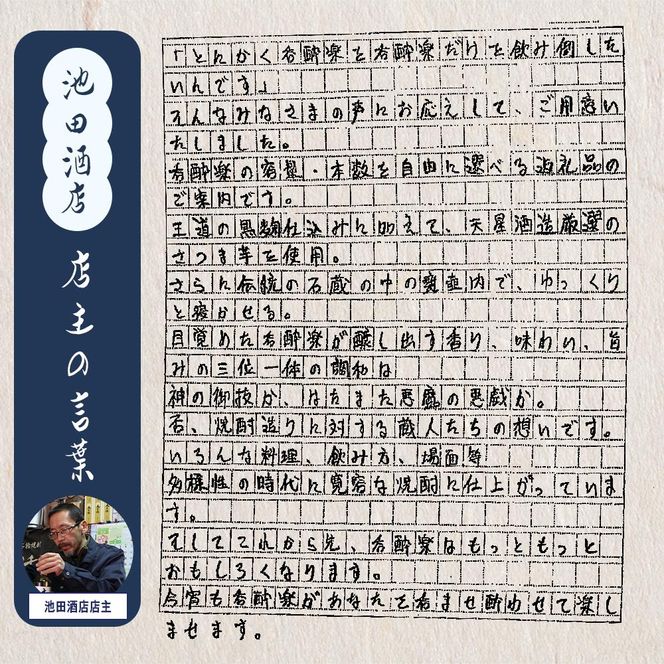 池田酒店
店主の言葉
池田酒店店主
「とんかく呑酔楽を呑酔楽だけを飲み倒した
いんです」
そんなみなさまの声にお応えして、ご用意い
たしました。
呑酔楽の容量・本数を自由に選べる返礼品の
ご案内です。
王道の黒麹仕込みに加えて、天星酒造厳選の
さつま芋を使用。
さらに伝統の石蔵の中の甕壷内で、ゆっくり
と寝かせる。
目覚めた呑酔楽が醸し出す香り、味わい、旨
みの三位一体の調和は
神の御技か、はたまた悪魔の悪戯か。
否、焼酎造りに対する蔵人たちの想いです。
いろんな料理、飲み方、場面等
多様性の時代に寛容な焼酎に仕上がっていま
す。
そしてこれから先、呑酔楽はもっともっと
おもしろくなります。
今宵も呑酔楽があなたを呑ませ酔わせて楽し
ませます。